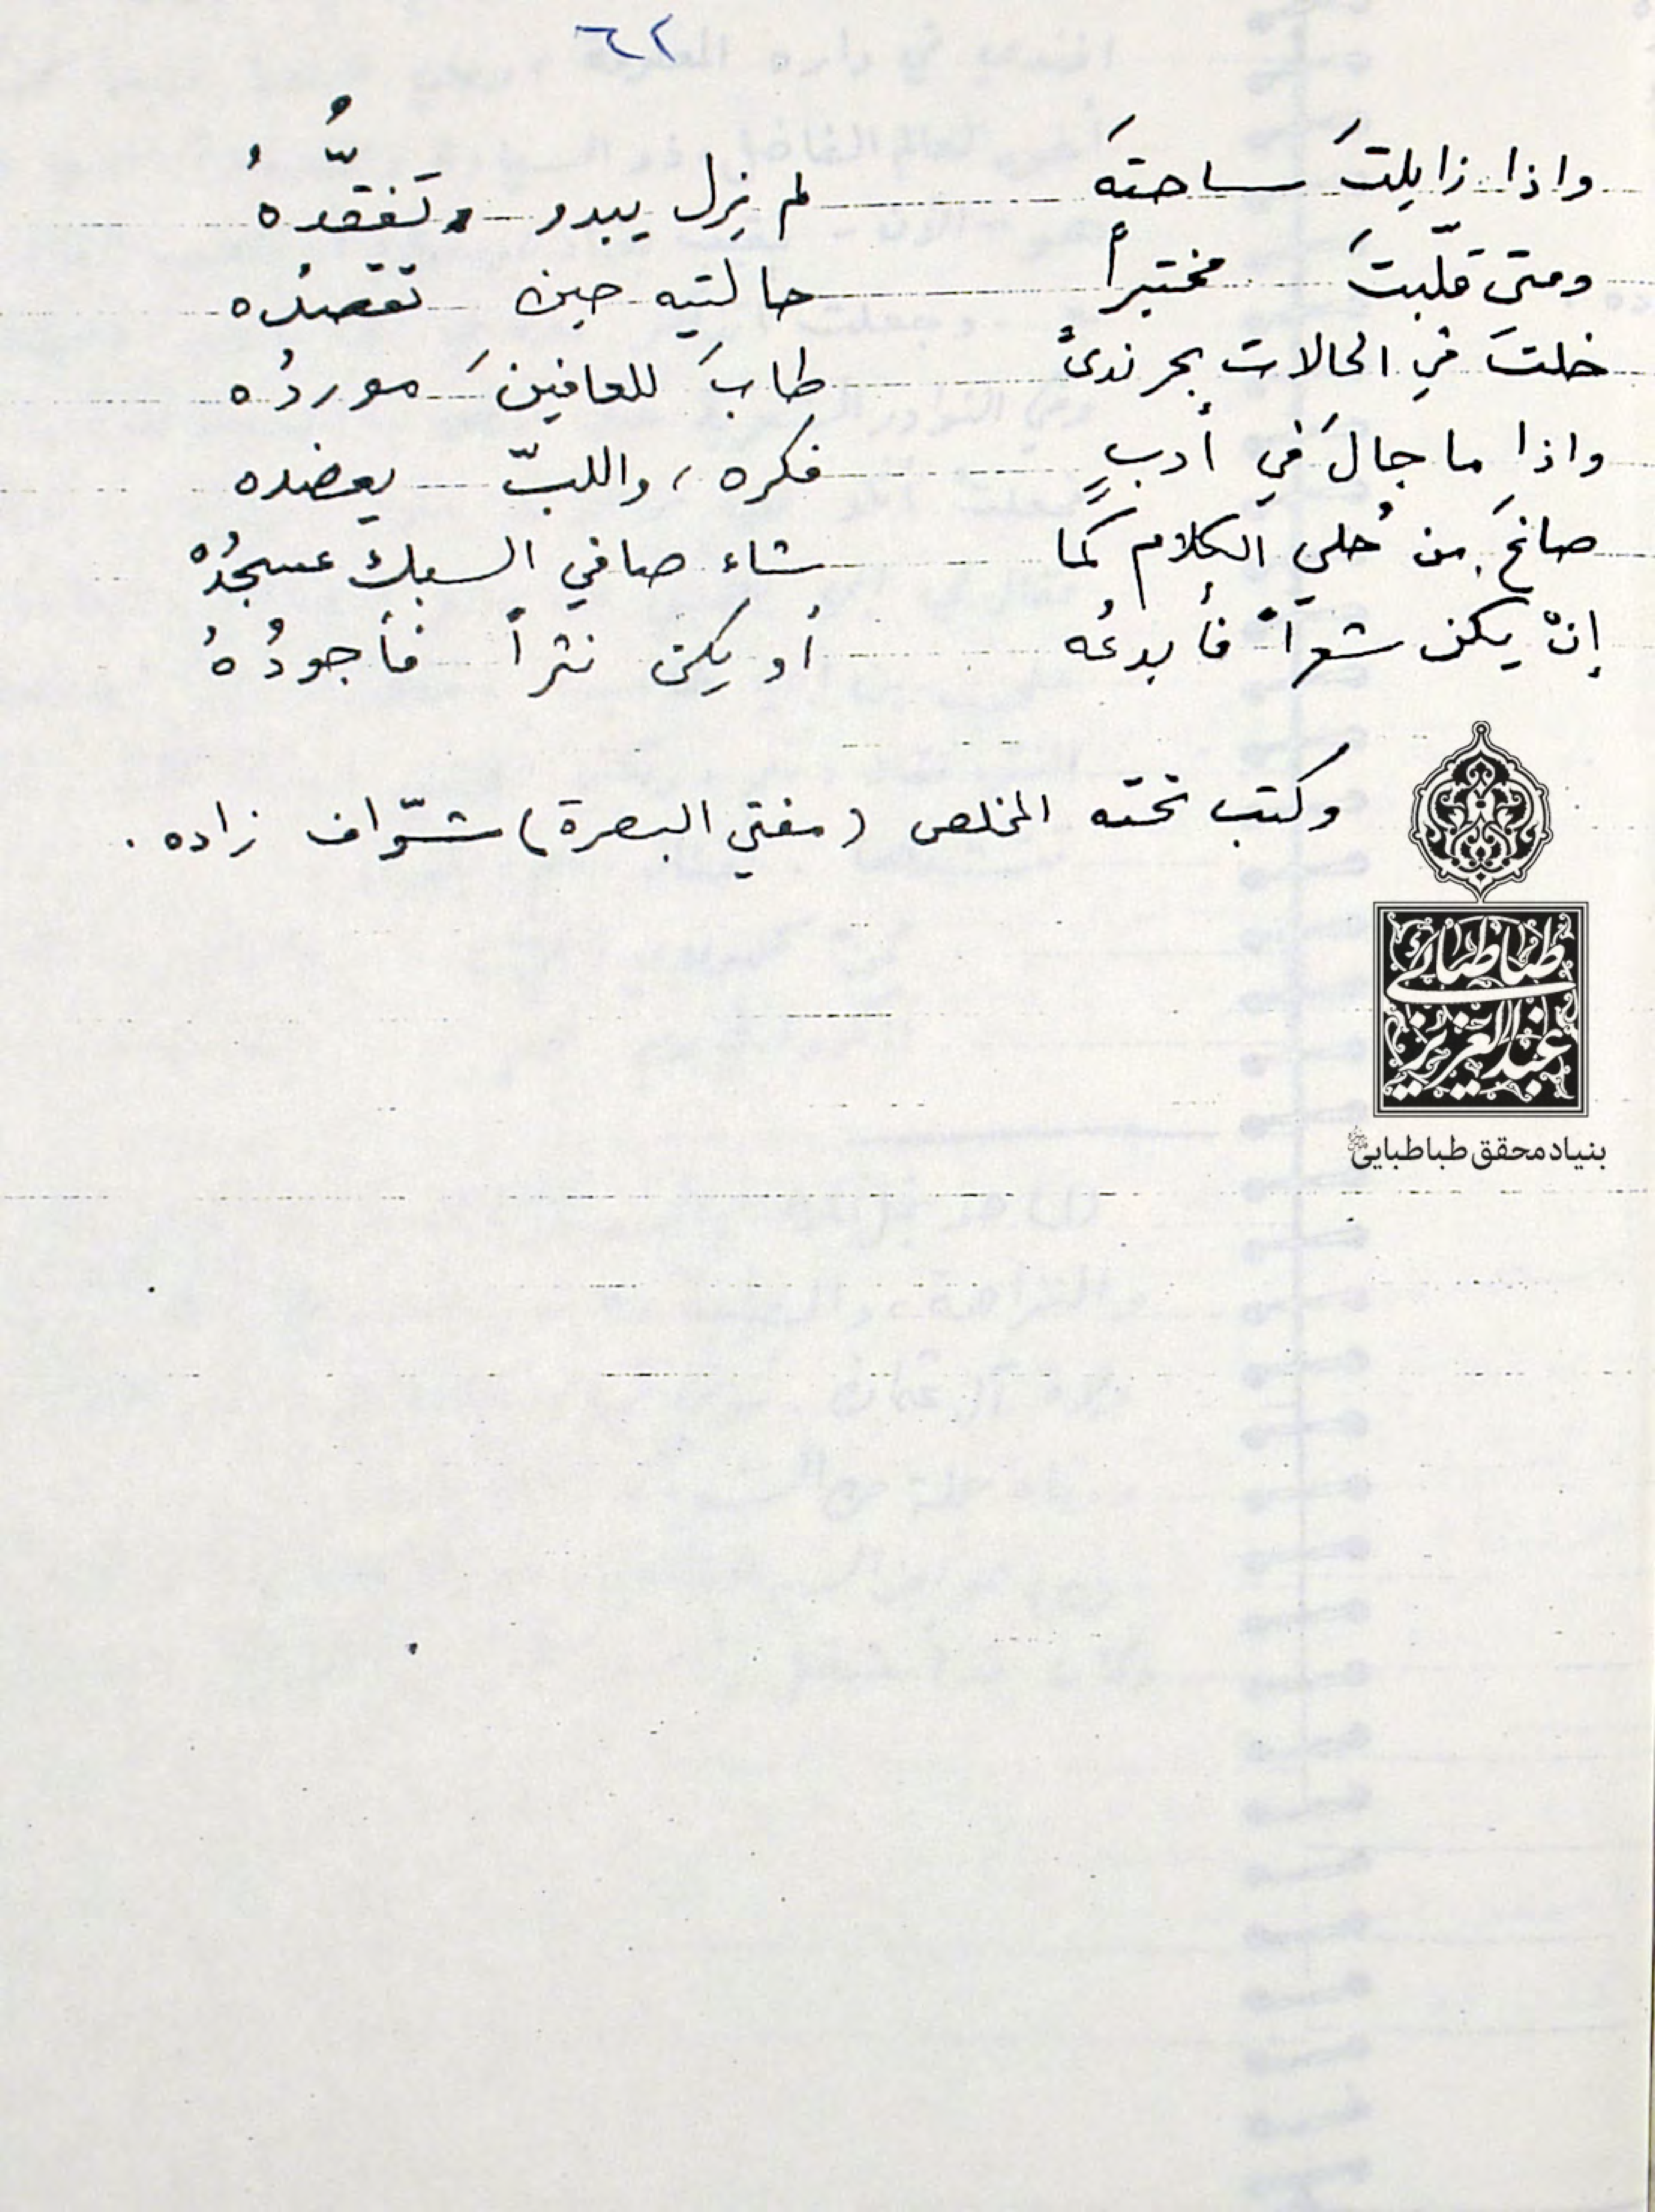 ٦٢
واذا زايلتَ ساحتهَ لم يزل يبدو تَفقّدُهُ
ومتى قلّبتَ مختبراً حالتيه حين تقصدُه
خلتَ في الحالات بحر ندىً طابَ للعافينَ موردُه
واذا ما جالَ في أدبٍ فكره، واللبّ يعضده
صاغَ من حُلي الكلام كما شاء صافي السبك عسجدُه
إنْ يكن شعراً فأبدعُه أو يكن نثراً فأجودُهُ
وكتب تحته المخلص (مفتي البصرة) شوّاف زاده.
طباطبائي
عبدالعزيز
بنیاد محقق طباطبایی